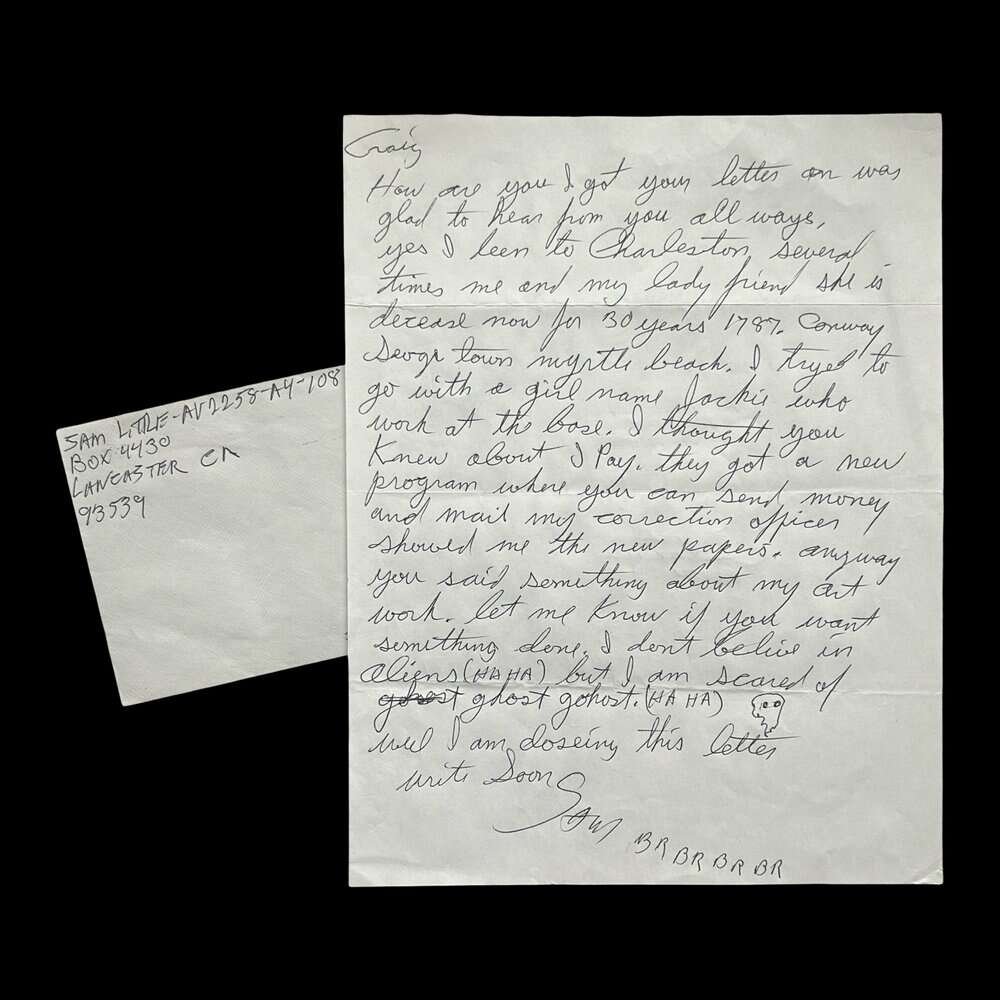 SAM LITTLE-AV2258-A4-108
BOX 4430
LANCASTER CA
93539
Craig
How are you I got your letter an was
glad to hear from you all ways,
yes I been to Charleston several
times me and my lady friend she is
decease now for 30 years 1987. Conway
town myrtle beach. I tryed to
go with a girl name Jackie who
work at the base. I thought you
Knew about J Pay. they got a new
program where you can send money
and mail my correction officer
showed me the new papers. anyway
you said something about my art
work. let me Know if you want
something done. I don't belive in
aliens (HA HA) but I am scared of
ghost gohost. (HA HA)
well I am closeing this letter
write Soon
Sam
BR BR BR BR